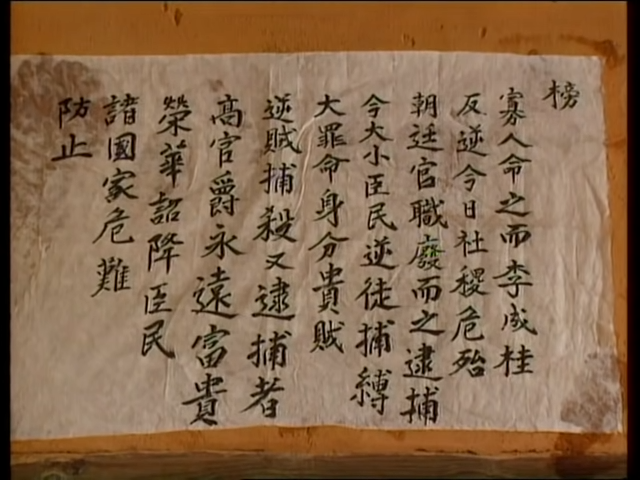 榜
寡人命之而李成桂
反逆今日社稷危殆
朝廷官職廢而之逮捕
今大小臣民逆徒捕縛
大罪命身分貴賊
逆賊捕殺又逮捕者
高官爵永遠富貴
榮華詔降臣民
諸國家危難
防止